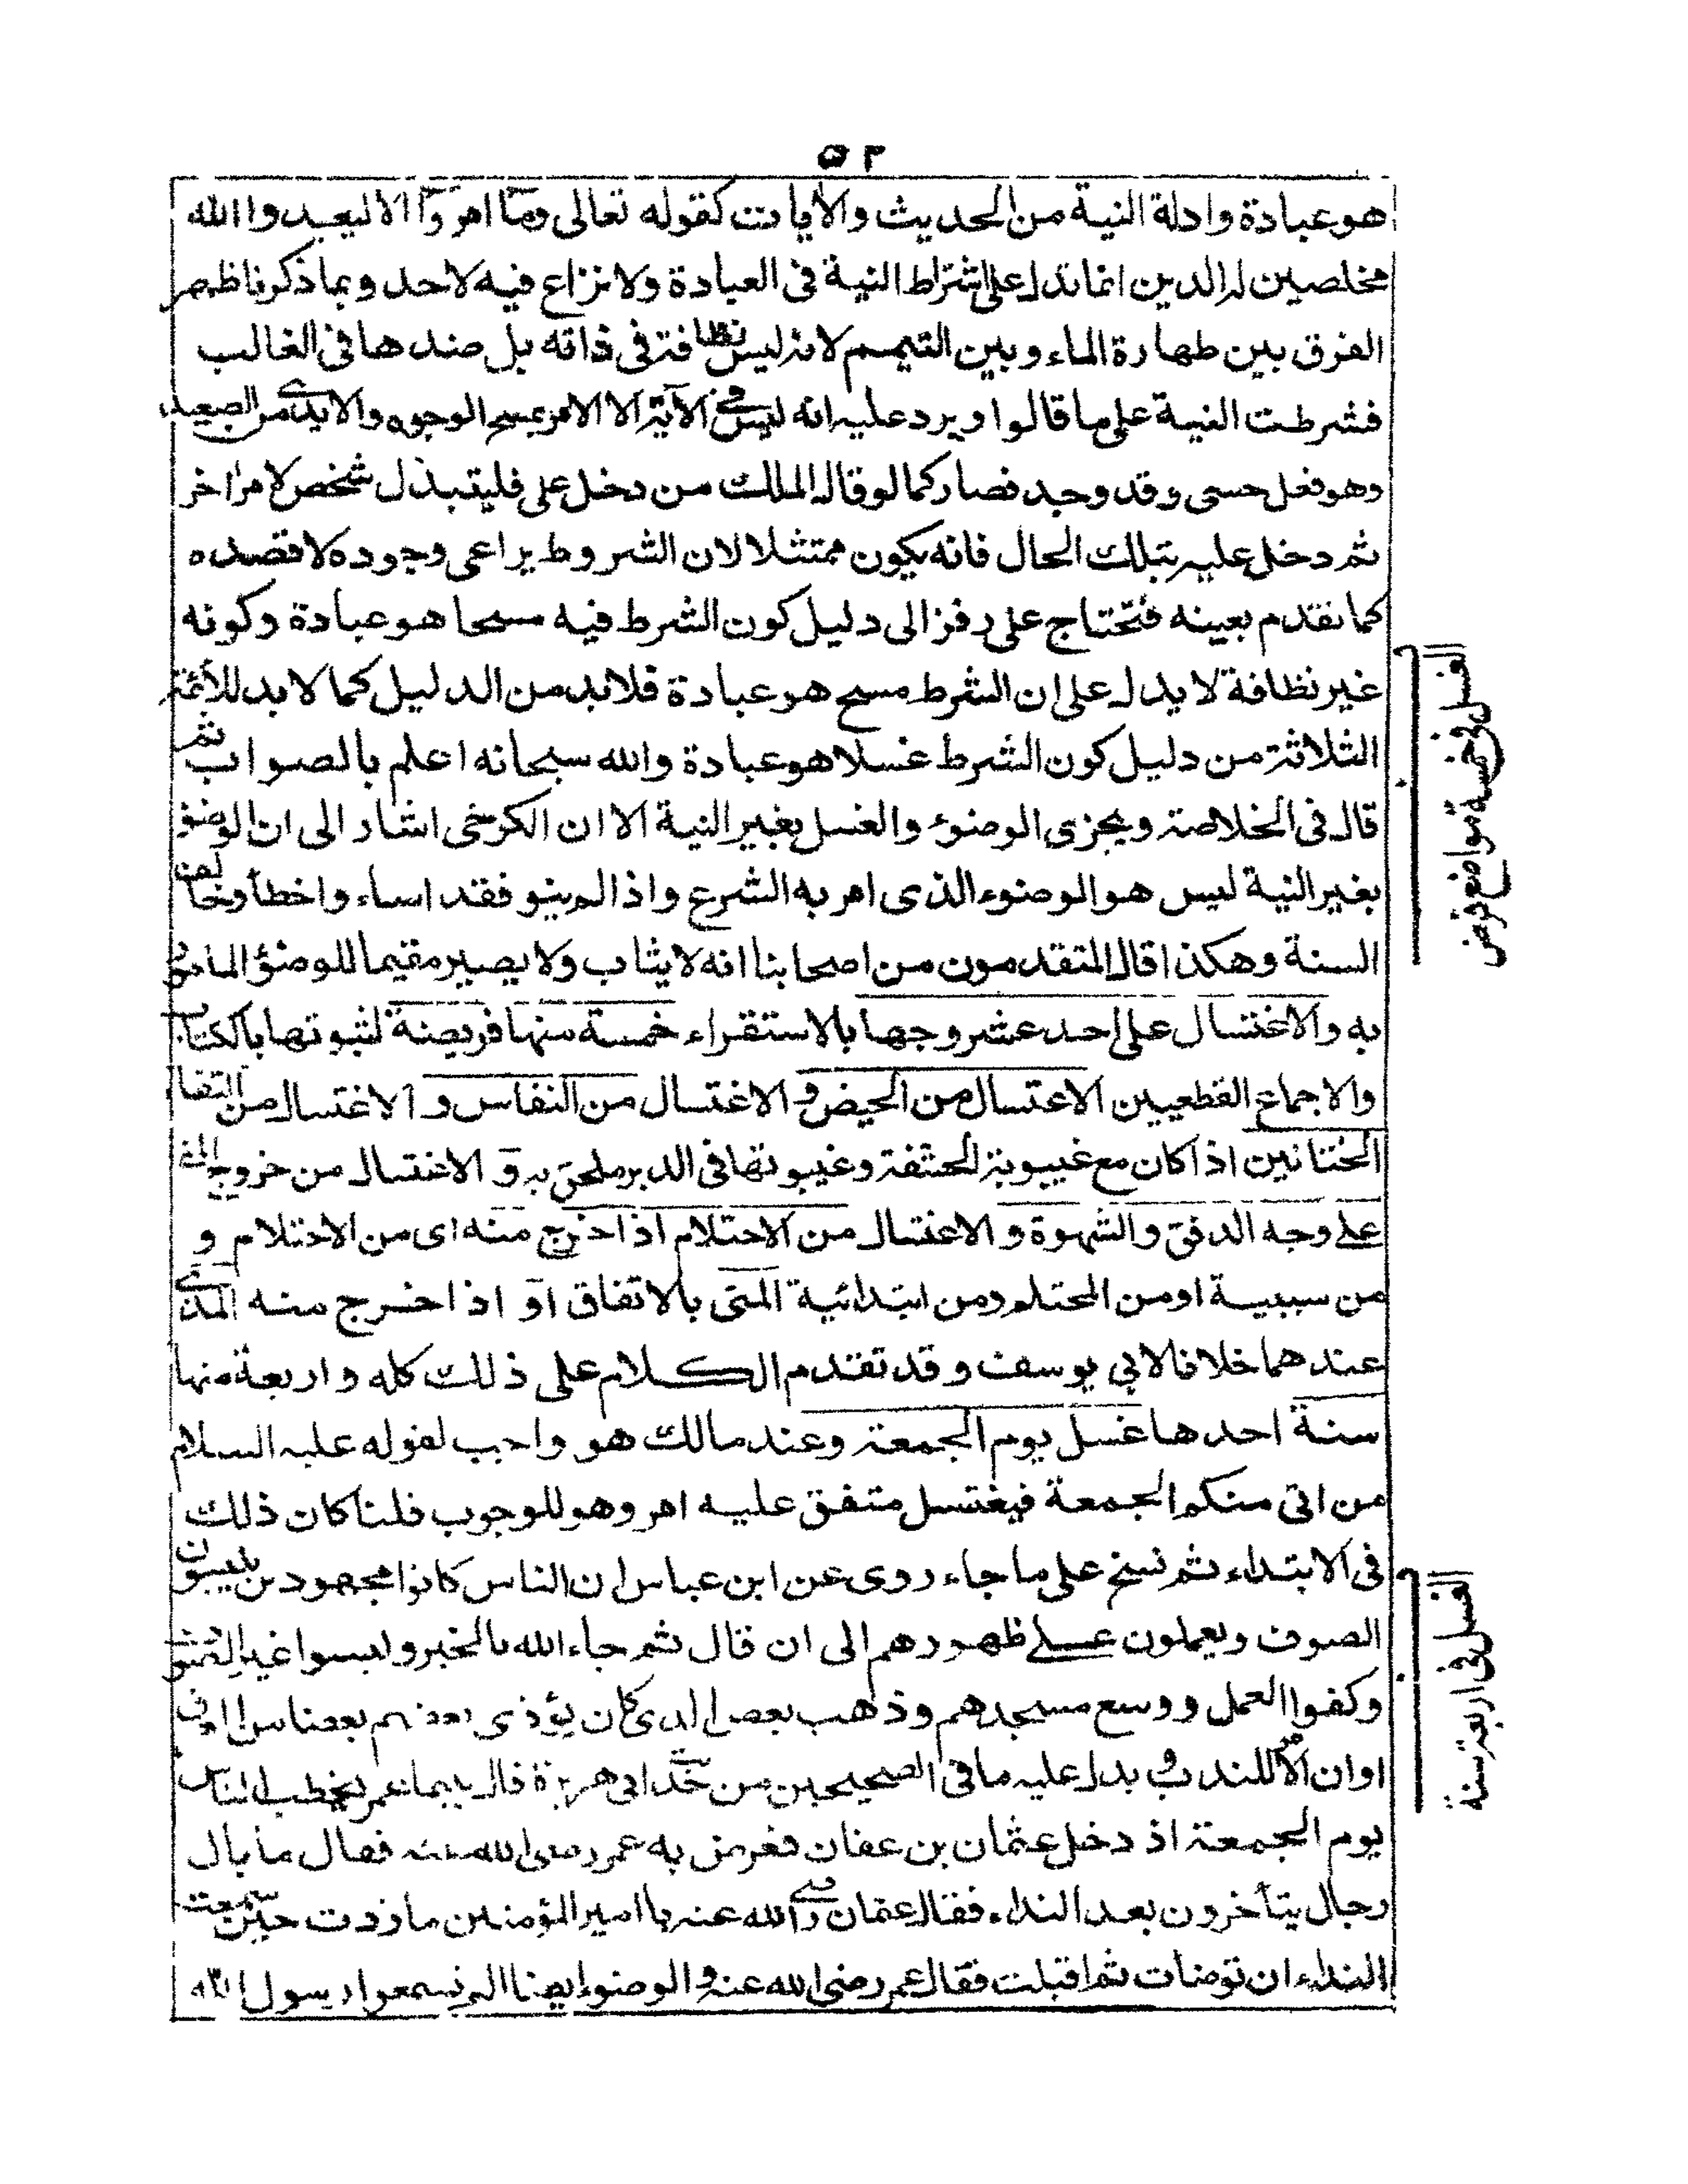 ٥٣
هو عبادة وادلة النية من الحديث والآيات كقوله تعالى وما امروا الا ليعبدوا الله
مخلصين له الدين انما تدل على اشتراط النية فى العبادة ولا نزاع فيه لاحد وبما ذكرنا ظهر
الفرق بين طهارة الماء وبين التيمم لانه ليس نظافة فى ذاته بل ضدها فى الغالب
فشرطت النية على ما قالوا ويرد عليه انه ليس فى الآية الا الامر بمسح الوجوه والايدى من الصعيد
وهو فعل حسى وقد وجد فصار كما لو قال الملك من دخل على فليتبذل شخص لامر اخر
ثم دخل عليه بتلك الحال فانه يكون ممتثلا لان الشروط يراعى وجوده لا قصده
كما تقدم بعينه فتحتاج على رفز الى دليل كون الشرط فيه مسحا هو عبادة وكونه
غير نظافة لا يدل على ان الشرط مسح هو عبادة فلا بد من الدليل كما لا بد للأئمة
الثلاثة من دليل كون الشرط غسلا هو عبادة والله سبحانه اعلم بالصواب ثم
قال فى الخلاصة ويجزى الوضوء والغسل بغير النية الا ان الكرخى اشار الى ان الوضوء
بغير النية ليس هو الوضوء الذى امر به الشرع واذا لم ينو فقد اساء واخطأ وخالف
السنة وهكذا قال المتقدمون من اصحابنا انه لا يثاب ولا يصير مقيما للوضؤ المامور
به والاغتسال على احد عشر وجها بالاستقراء خمسة منها فريضة لثبوتها بالكتاب
والاجماع القطعيين الاغتسال من الحيض و الاغتسال من النفاس و الاغتسال من التقاء
الختانين اذا كان مع غيبوبة الحشفة وغيبوبتها فى الدبر ملحق به و الاغتسال من خروج المنى
على وجه الدفق والشهوة و الاغتسال من الاحتلام اذا خرج منه اى من الاحتلام و
من سببية او من المحتلم ومن ابتدائية المنى بالاتفاق او اذا خرج منه المذى
عندهما خلافا لابي يوسف وقد تقدم الكلام على ذلك كله واربعة منها
سنة احدها غسل يوم الجمعة وعند مالك هو واجب لقوله عليه السلام
من اتى منكم الجمعة فيغتسل متفق عليه امر وهو للوجوب قلنا كان ذلك
فى الابتداء ثم نسخ على ما جاء روى عن ابن عباس ان الناس كانوا مجهودين يلبسون
الصوف ويعملون على ظهورهم الى ان قال ثم جاء الله بالخير ولبسوا غير الصوف
وكفوا العمل ووسع مسجدهم وذهب بعض الذى كان يؤذى بعضهم بعضا من العرق
او ان الامر للندب و يدل عليه ما فى الصحيحين من حديث ابى هريرة قال بينما عمر يخطب الناس
يوم الجمعة اذ دخل عثمان بن عفان فعرض به عمر رضى الله عنه فقال ما بال
رجال يتأخرون بعد النداء فقال عثمان رضى الله عنه يا امير المؤمنين ما زدت حين سمعت
النداء ان توضات ثم اقبلت فقال عمر رضى الله عنه و الوضوء ايضا الم تسمعوا رسول الله
الغسل فى خمسة مواضع فرض
الغسل فى اربعة سنة